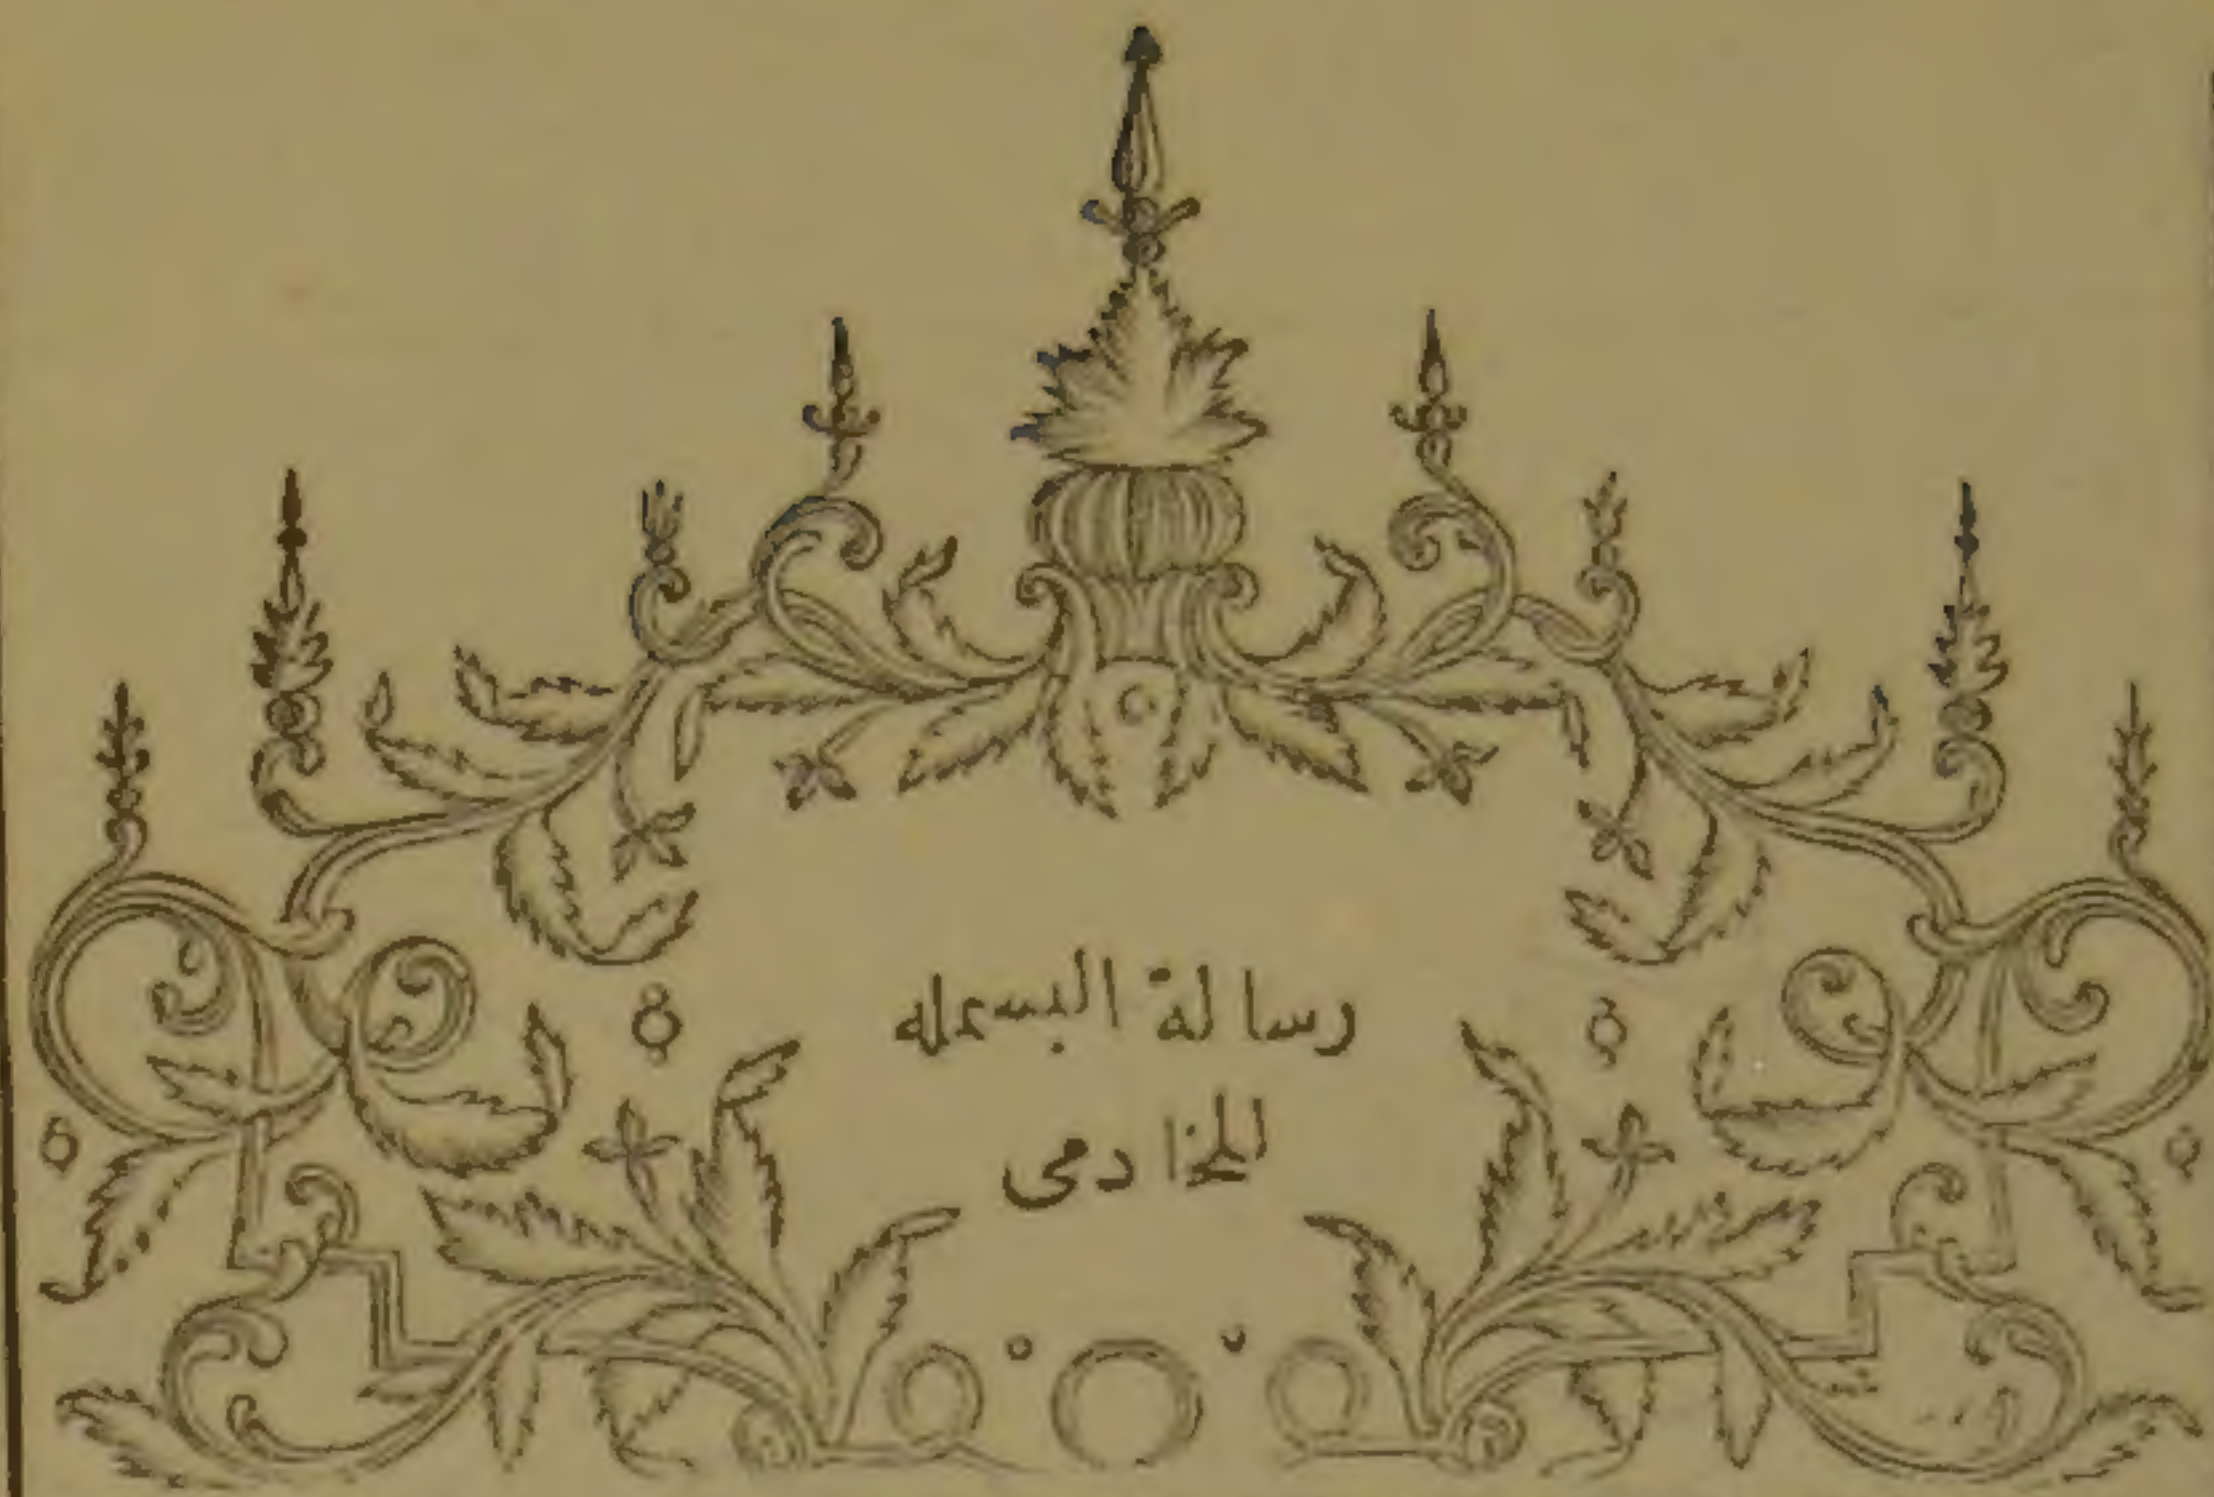 رسالة البسمله
للخادمى